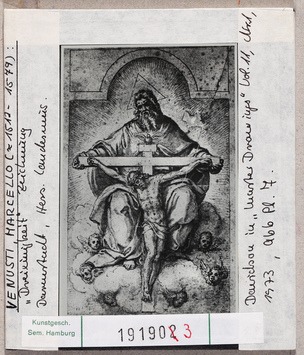 VENUSTI, MARCELLO (≈ 1512 - 1579):
"Dreieinigkeit" Zeichnung
Darmstadt, Hess. Landesmus.
Davidson in "Master Drawings" Vol. 11,
1973, Abb Pl. 7.
Kunstgesch.
Sem. Hamburg
191903